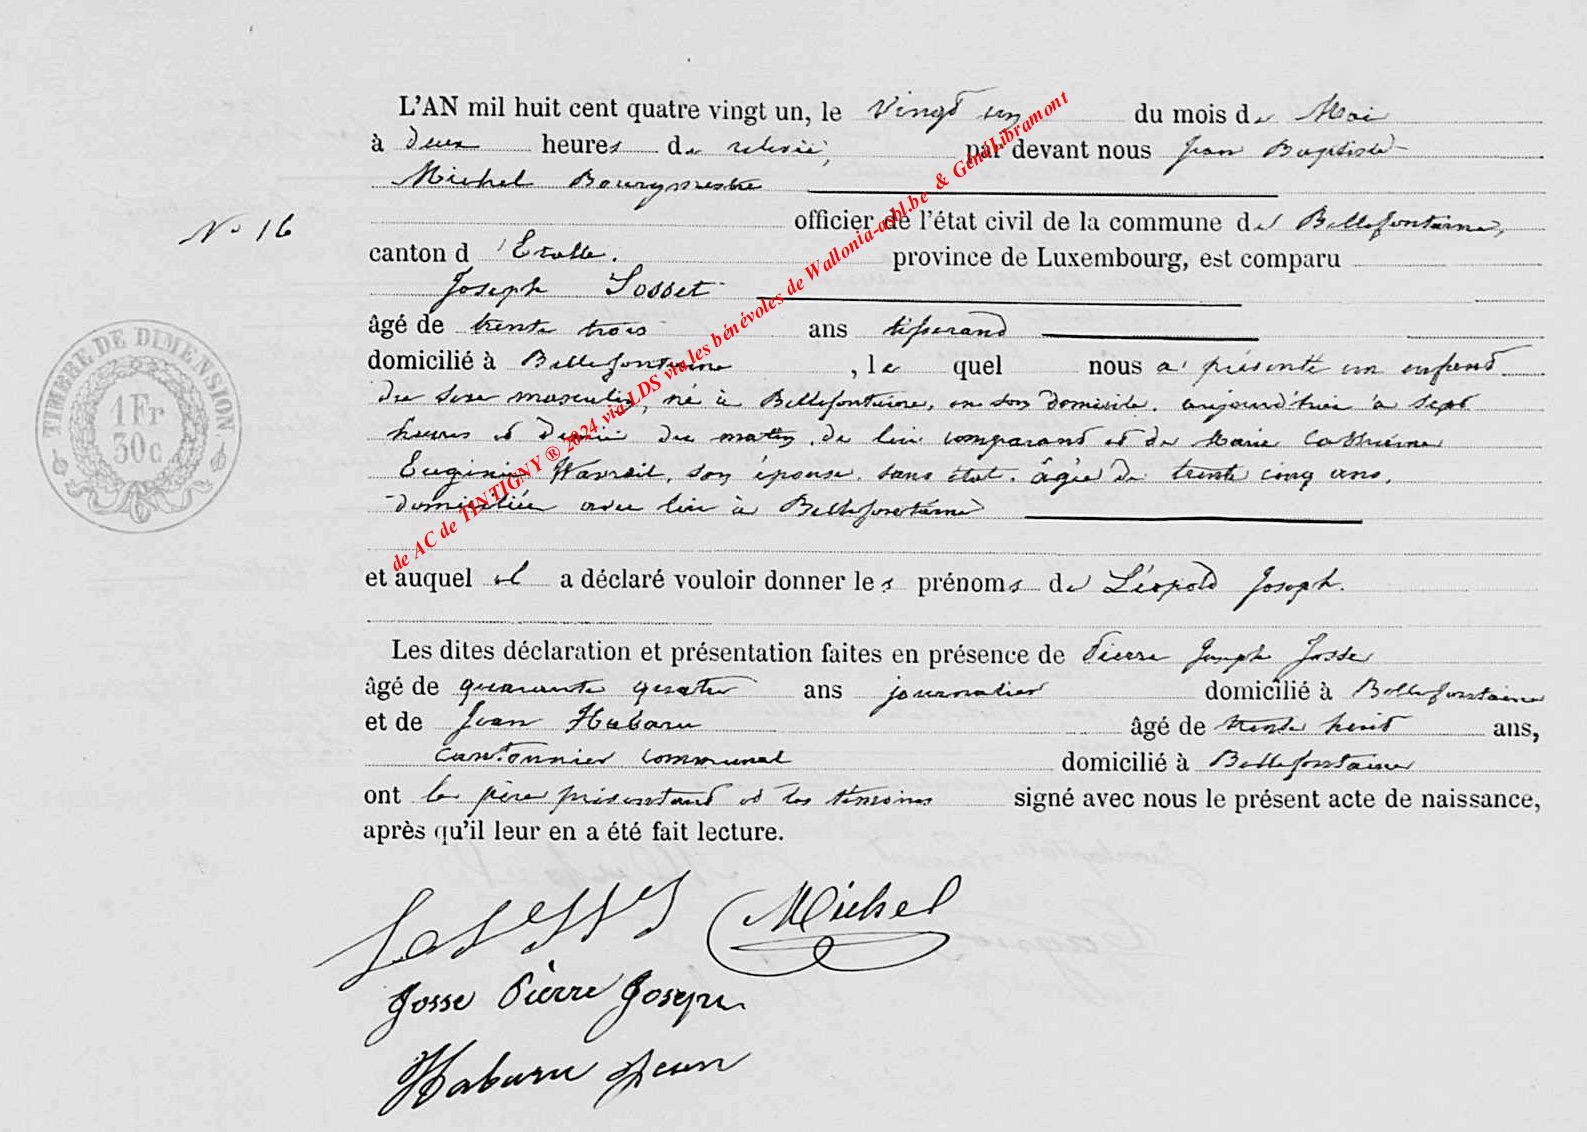 L'AN mil huit cent quatre vingt un, le Vingt un du mois de Mai
à deux heures de relevée, par devant nous Jean Baptiste
Michel Bourgmestre
N° 16
officier de l'état civil de la commune de Bellefontaine,
canton d'Etalle. province de Luxembourg, est comparu
Joseph Sosset
âgé de trente trois ans tisserand
domicilié à Bellefontaine, le quel nous a présenté un enfant
du sexe masculin, né à Bellefontaine, en son domicile. aujourd'hui à sept
heures et demie du matin, de lui comparant et de Marie Catherine
Eugénie son épouse. sans état. âgée de trente cinq ans,
domiciliée avec lui à Bellefontaine
et auquel il a déclaré vouloir donner les prénoms de Léopold Joseph.
Les dites déclaration et présentation faites en présence de Pierre Joseph Josse
âgé de quarante quatre ans journalier domicilié à Bellefontaine
et de Jean Habaru âgé de trente huit ans,
cantonnier communal domicilié à Bellefontaine
ont le père présentant et les témoins signé avec nous le présent acte de naissance,
après qu'il leur en a été fait lecture.
Michel
Josse Pierre Joseph
Habaru Jean
TIMBRE DE DIMENSION
1 Fr
30 c
de AC de TINTIGNY ® 2024 via LDS via les bénévoles de Wallonia-asbl.be & GénéLibramont